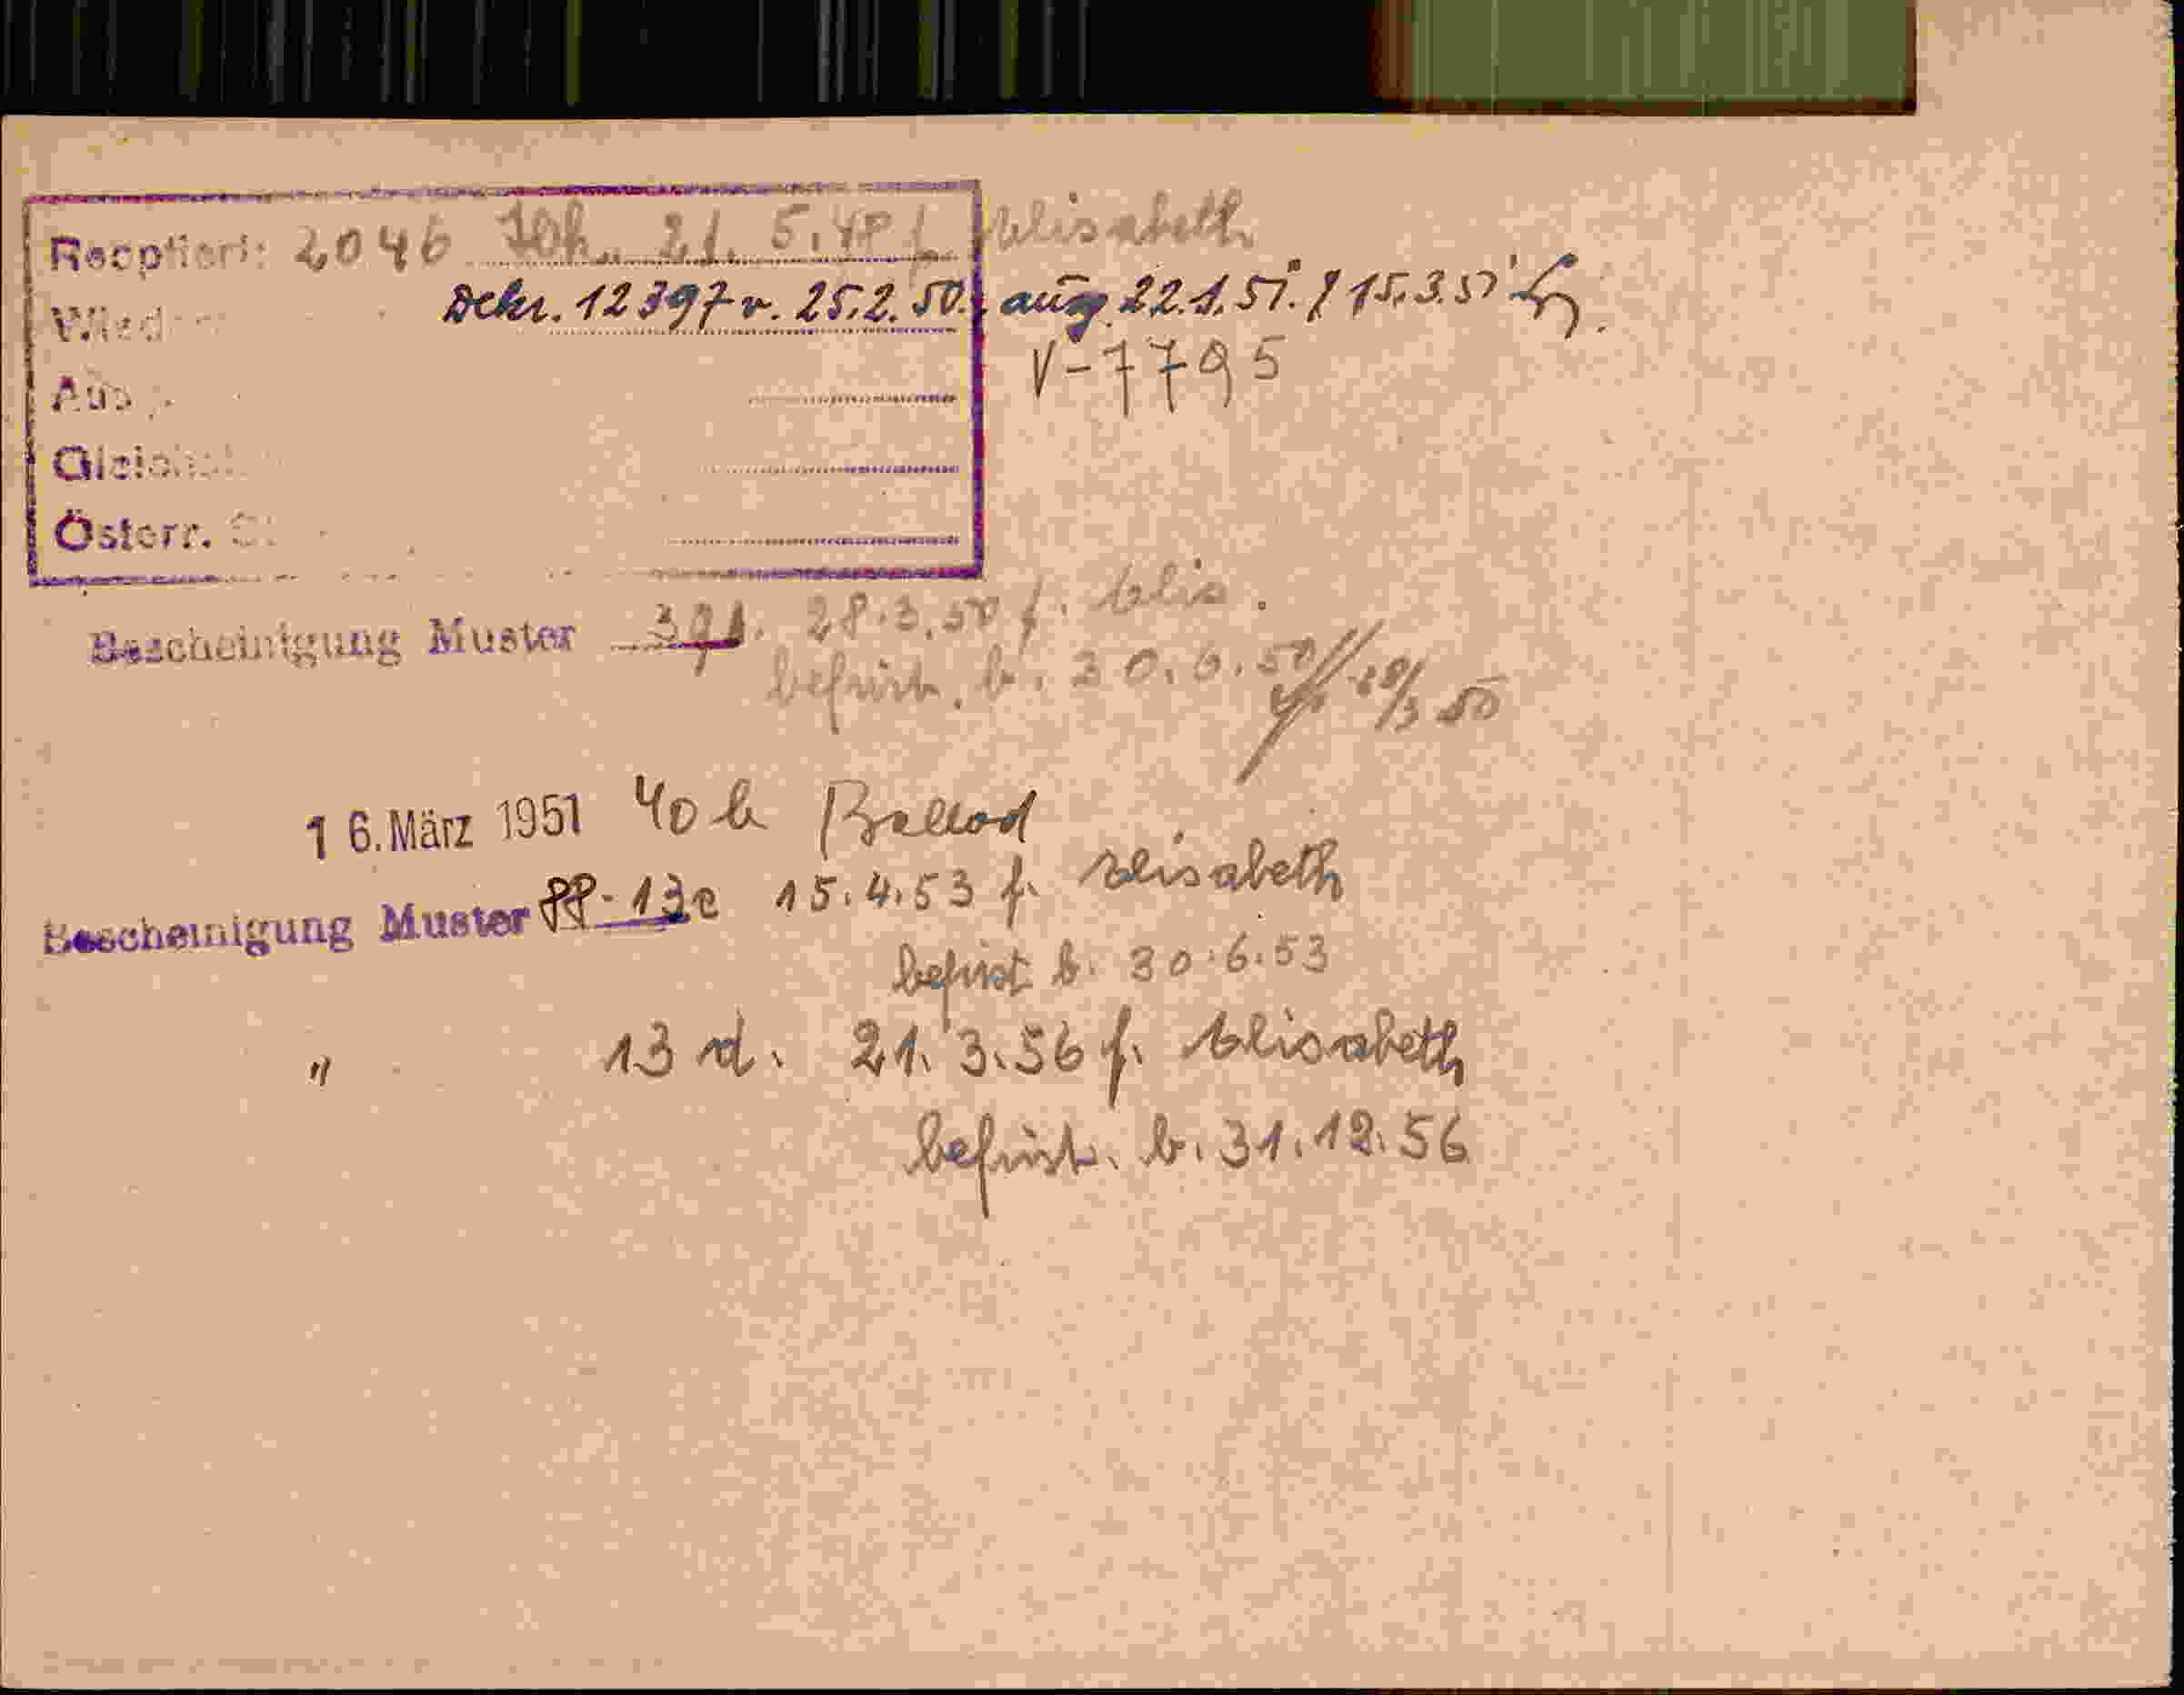 Recptiert: 2046 21. 5. 48 f. Elisabeth
Dekr. 12397 v. 25.2.50., ausg. 22.1.51. / 15.3.51
V-7795
Österr.
Bescheinigung Muster 39d. 28.3.50 f. Elis.
befrist. b. 30.6.50 28/3 50
16. März 1951 40 b Ballod
Bescheinigung Muster 13c 15.4.53 f. Elisabeth
befrist b. 30.6.53
" 13 d. 21.3.56 f. Elisabeth
befrist. b. 31.12.56